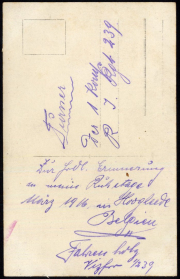 Turner
der 1 Komp
R. J. Rgt 239
Zur frdl. Erinnerung
an meine Ruhetage
März 1916 in Hooglede
Belgien